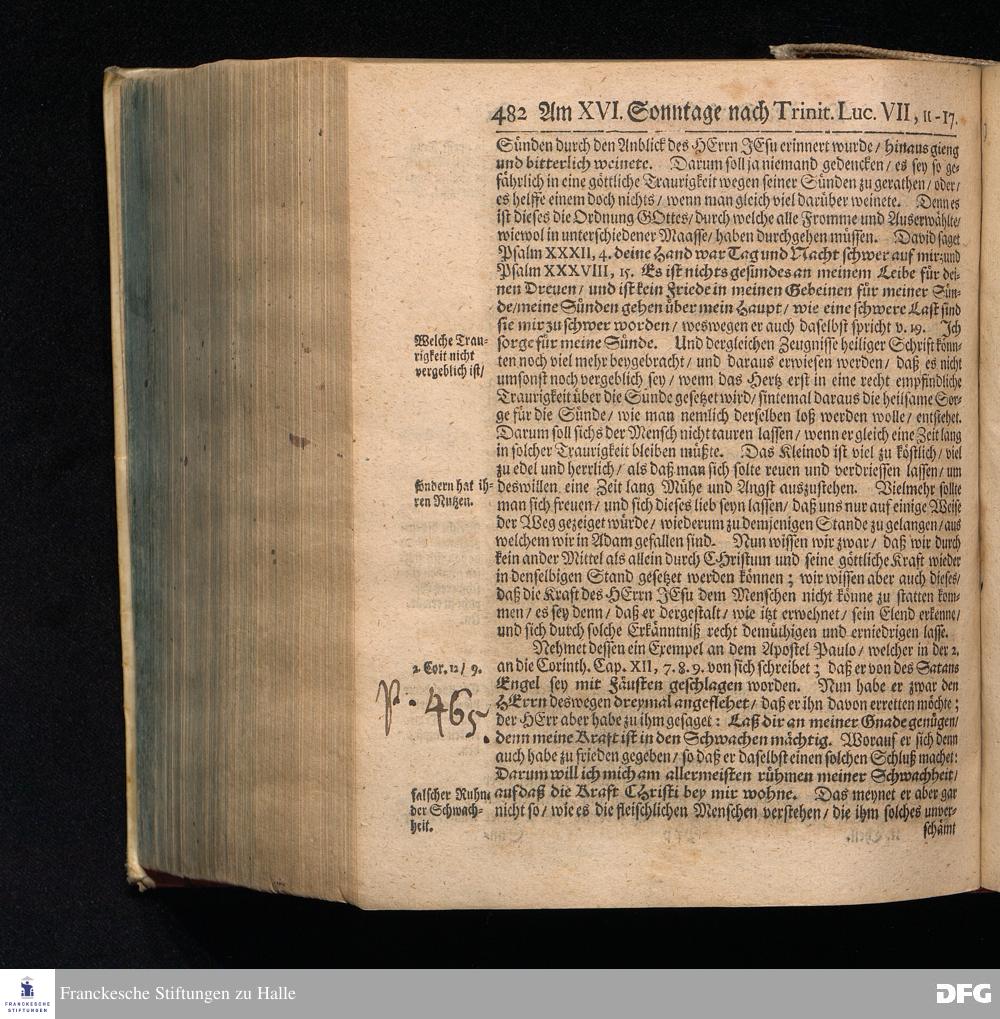 482 Am XVI. Sonntage nach Trinit. Luc. VII, 11-17.
Sünden durch den Anblick des HErrn JEsu erinnert wurde / hinaus gieng
und bitterlich weinete. Darum soll ja niemand gedencken / es sey so ge-
fährlich in eine göttliche Traurigkeit wegen seiner Sünden zu gerathen / oder /
es helffe einem doch nichts / wenn man gleich viel darüber weinete. Denn es
ist dieses die Ordnung GOttes / durch welche alle Fromme und Auserwählte /
wiewol in unterschiedener Maasse / haben durchgehen müssen. David saget
Psalm XXXII, 4. deine Hand war Tag und Nacht schwer auf mir: und
Psalm XXXVIII, 15. Es ist nichts gesundes an meinem Leibe für dei-
nen Dreuen / und ist kein Friede in meinen Gebeinen für meiner Sün-
de / meine Sünden gehen über mein Haupt / wie eine schwere Last sind
sie mir zu schwer worden / weswegen er auch daselbst spricht v. 19. Ich
sorge für meine Sünde. Und dergleichen Zeugnisse heiliger Schrift könn-
ten noch viel mehr beygebracht / und daraus erwiesen werden / daß es nicht
umsonst noch vergeblich sey / wenn das Hertz erst in eine recht empfindliche
Traurigkeit über die Sünde gesetzet wird / sintemal daraus die heilsame Sor-
ge für die Sünde / wie man nemlich derselben loß werden wolle / entstehet.
Darum soll sichs der Mensch nicht tauren lassen / wenn er gleich eine Zeit lang
in solcher Traurigkeit bleiben müßte. Das Kleinod ist viel zu köstlich / viel
zu edel und herrlich / als daß man sich solte reuen und verdriessen lassen / um
deswillen eine Zeit lang Mühe und Angst auszustehen. Vielmehr sollte
man sich freuen / und sich dieses lieb seyn lassen / daß uns nur auf einige Weise
der Weg gezeiget würde / wiederum zu demjenigen Stande zu gelangen / aus
welchem wir in Adam gefallen sind. Nun wissen wir zwar / daß wir durch
kein ander Mittel als allein durch CHristum und seine göttliche Kraft wieder
in denselbigen Stand gesetzet werden können ; wir wissen aber auch dieses /
daß die Kraft des HErrn JEsu dem Menschen nicht könne zu statten kom-
men / es sey denn / daß er dergestalt / wie itzt erwehnet / sein Elend erkenne /
und sich durch solche Erkänntniß recht demüthigen und erniedrigen lasse.
Nehmet dessen ein Exempel an dem Apostel Paulo / welcher in der 2.
an die Corinth. Cap. XII, 7. 8. 9. von sich schreibet ; daß er von des Satans
Engel sey mit Fäusten geschlagen worden. Nun habe er zwar den
HErrn deswegen dreymal angeflehet / daß er ihn davon erretten möchte ;
der HErr aber habe zu ihm gesaget : Laß dir an meiner Gnade genügen /
denn meine Kraft ist in den Schwachen mächtig. Worauf er sich denn
auch habe zu frieden gegeben / so daß er daselbst einen solchen Schluß machet:
Darum will ich mich am allermeisten rühmen meiner Schwachheit /
auf daß die Kraft CHristi bey mir wohne. Das meynet er aber gar
nicht so / wie es die fleischlichen Menschen verstehen / die ihm solches unver-
schämt
Welche Trau-
rigkeit nicht
vergeblich ist /
sondern hat ih-
ren Nutzen.
2. Cor. 12 / 9.
p. 465.
falscher Ruhm
der Schwach-
heit.
FRANCKESCHE
STIFTUNGEN
Franckesche Stiftungen zu Halle
DFG